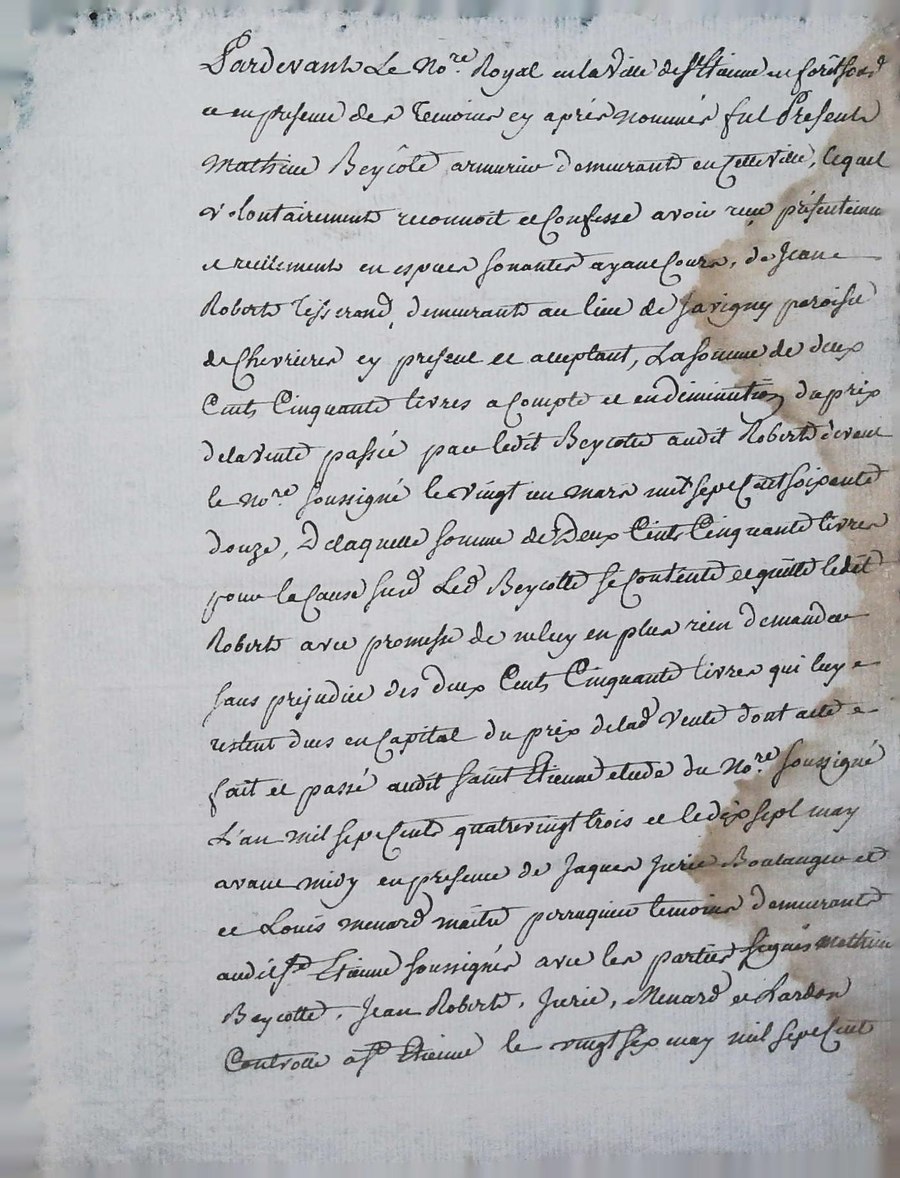 Pardevant Le No.re Royal en la Ville de St Etienne en forêt sousd
et en presence des Temoins cy après nommés fut Present
Mathieu Beycôte armurier demeurant en Cette ville, lequel
volontairement reconnoit et Confesse avoir reçu présentement
et reellement en especes sonantes ayant Cours, de Jean
Robert Tisserand, demeurant au lieu de Javigny paroisse
de Chevrieres cy present et acceptant, La somme de deux
Cents Cinquante livres a Compte et en diminution du prix
de la vente passée par ledit Beycotte audit Robert devant
le No.re soussigné le vingt un mars mil sept Cent soixante
douze, De laquelle somme de Deux Cents Cinquante livres
pour la Cause susd Led Beycotte se Contente et quitte ledit
Robert avec promesse de ne luy en plus rien demander
sans prejudice des deux Cents Cinquante livres qui luy
restent dues en Capital du prix de lad Vente dont acte
fait et passé audit Saint Etienne etude du No.re soussigné
L'an mil sept Cents quatre vingt trois et le dix sept may
avant midy en presence de Jaques Jurie Boulanger et
et Louis Menard maitre perruquier temoins demeurants
audit St Etienne soussignés avec les parties signés Mathieu
Beycotte, Jean Robert, Jurie, Menard et Lardon
Controllé a St Etienne le vingt six may mil sept Cent